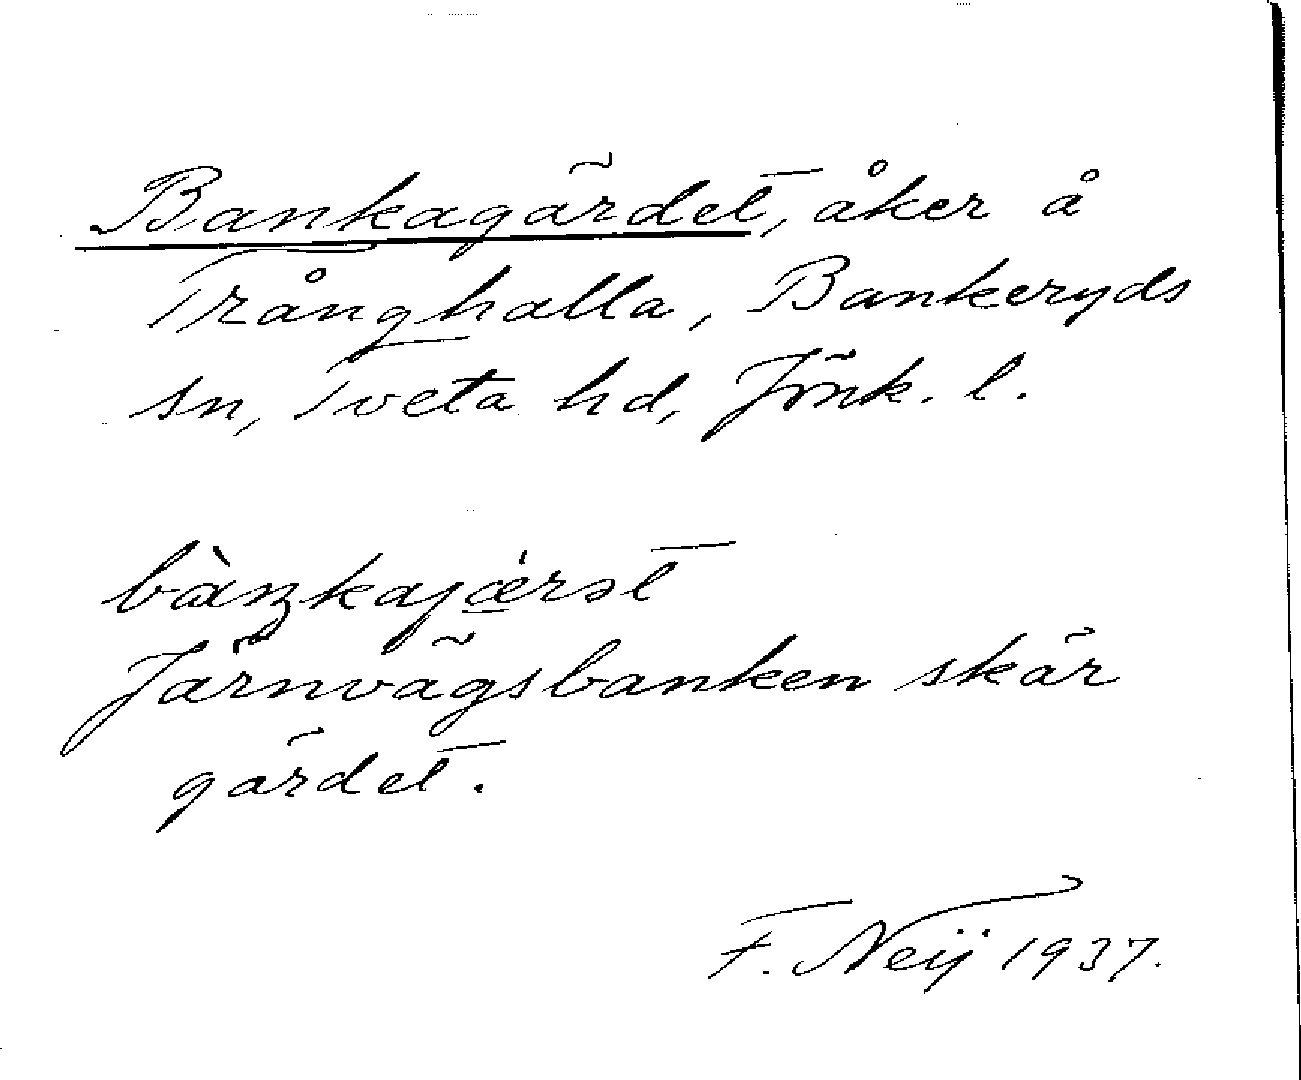 Bankagärdet, åker å
Trånghalla, Bankeryds
sn, Tveta hd, Jönk. l.
bàŋkajæ̀rət
Järnvägsbanken skär
gärdet.
F. Neij 1937.